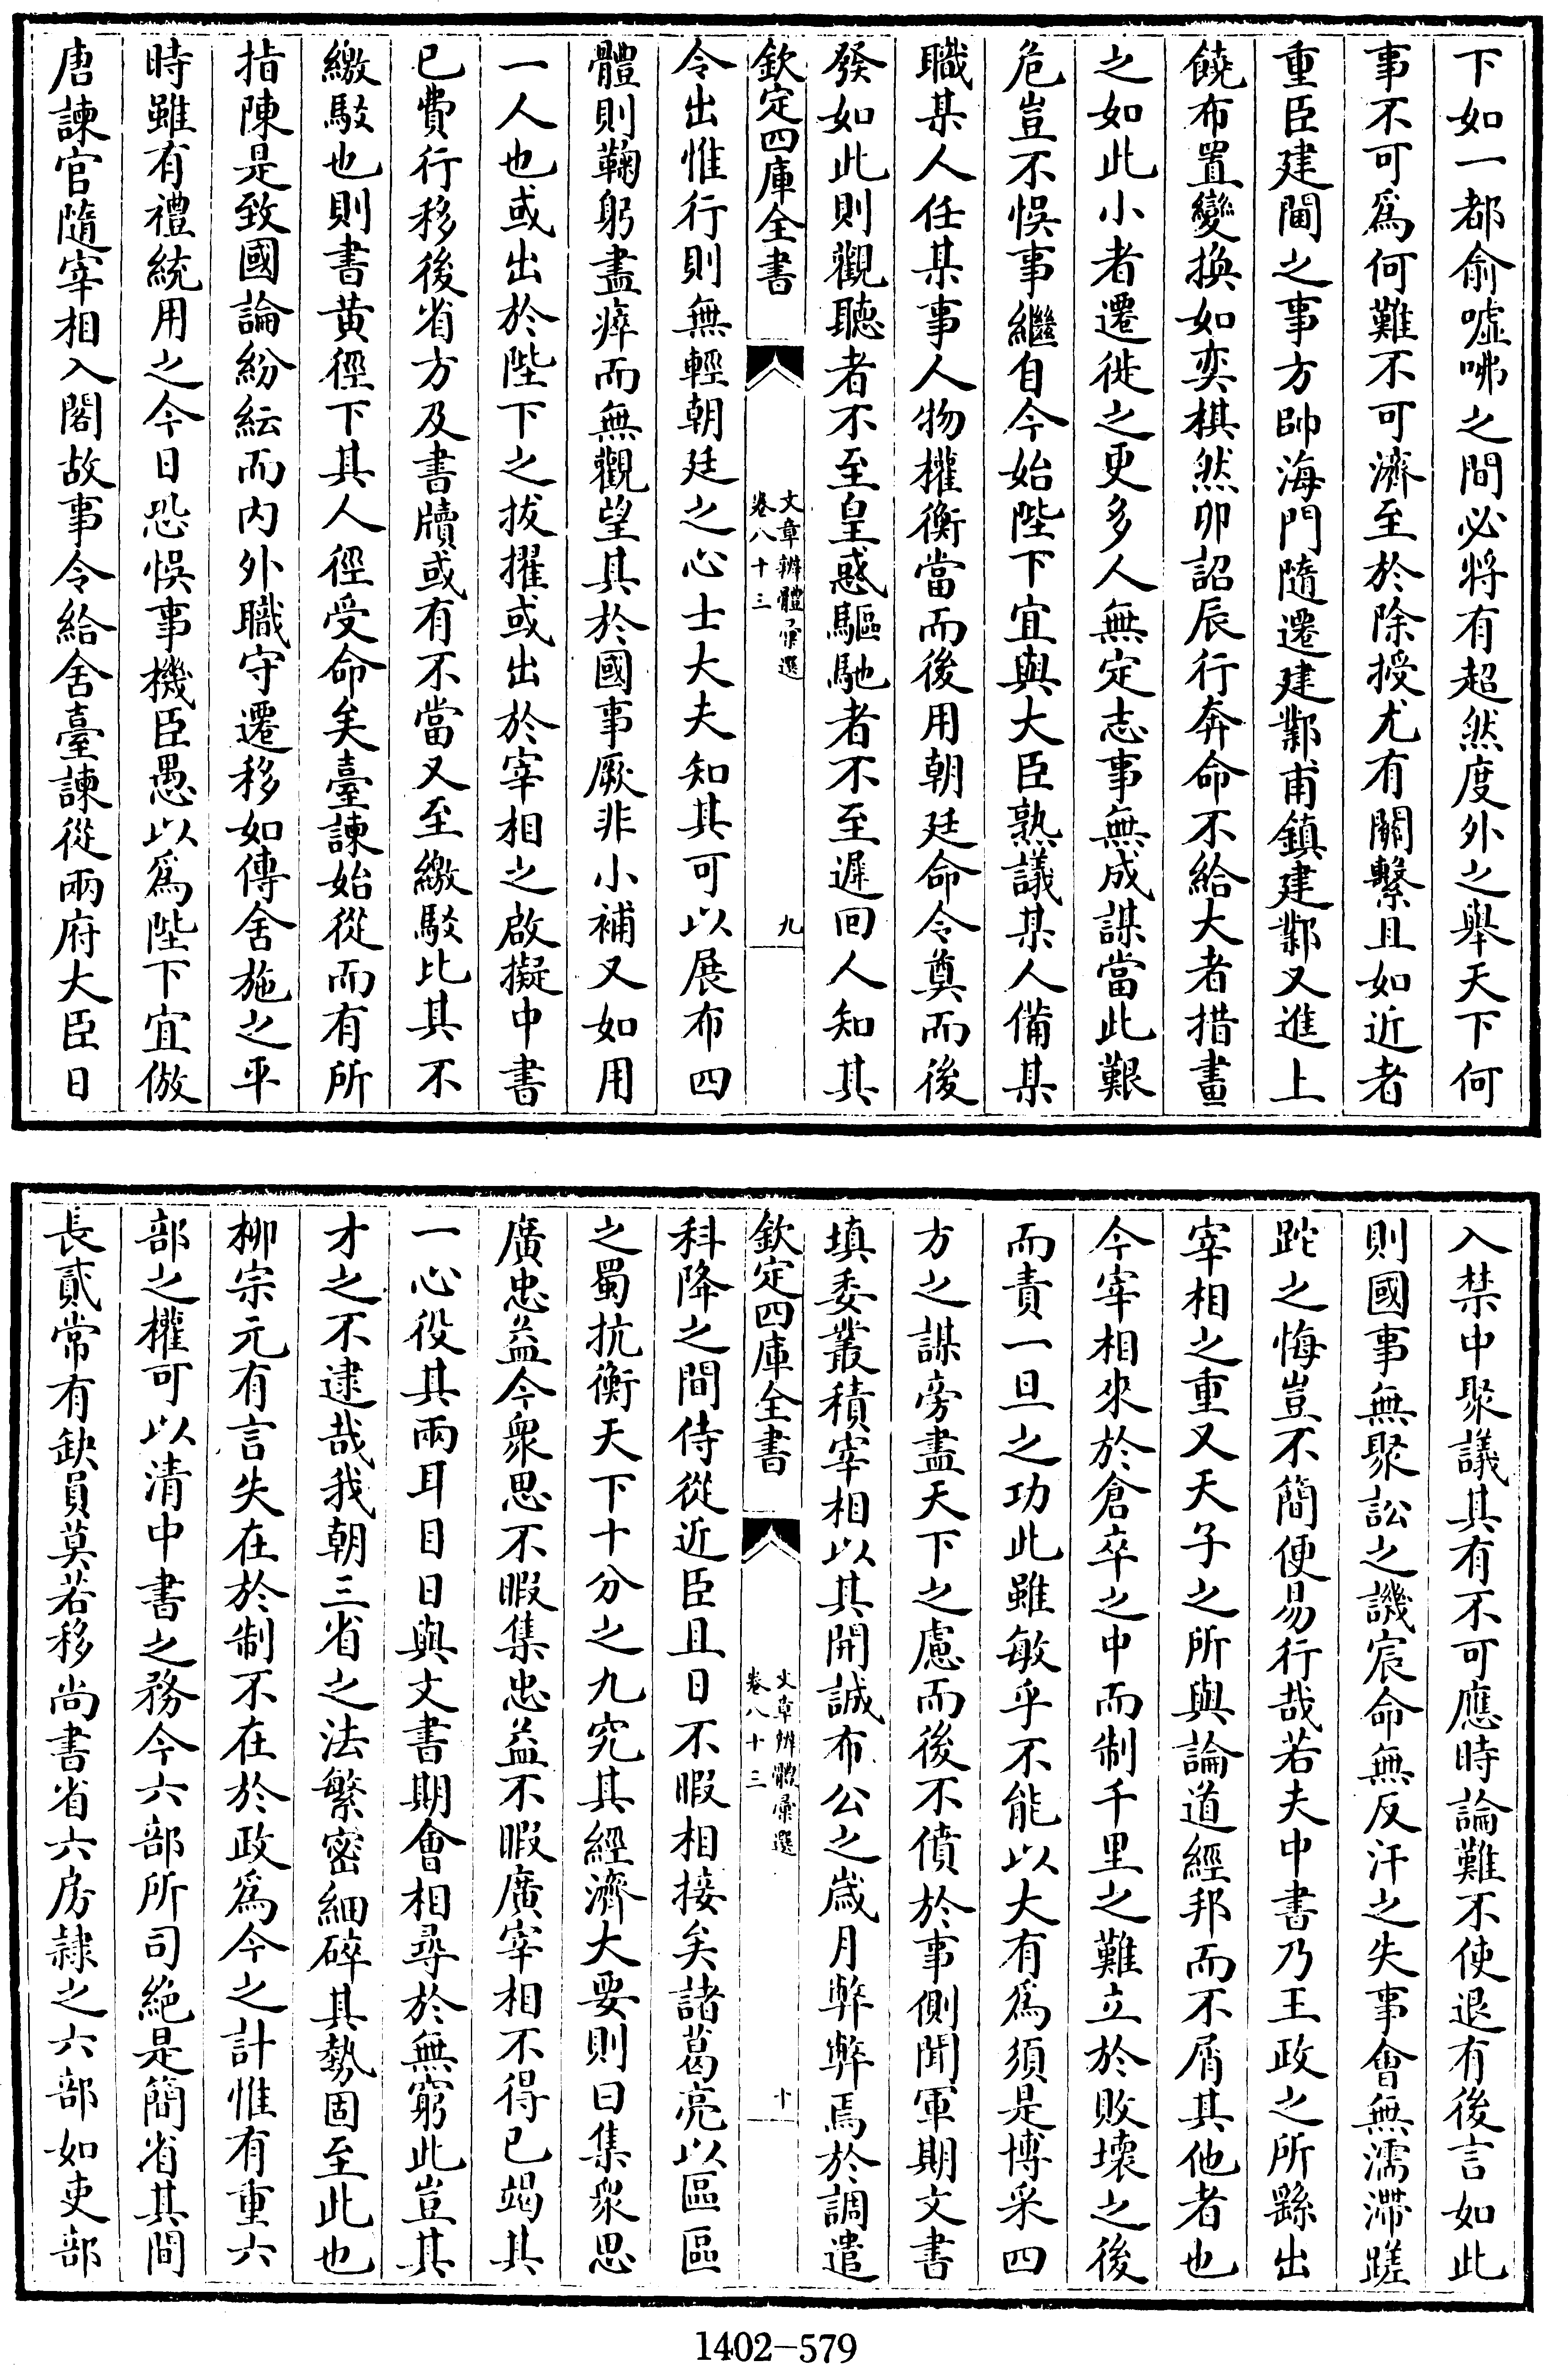 下如一都俞嘘咈之間必將有超然度外之舉天下何
事不可爲何難不可濟至於除授尤有關繫且如近者
重臣建閫之事方帥海門隨遷建鄴甫鎮建鄴又進上
饒布置變換如奕棋然卯詔辰行奔命不給大者措畫
之如此小者遷徙之更多人無定志事無成謀當此艱
危豈不悞事繼自今始陛下宜與大臣熟議某人備某
職某人任某事人物權衡當而後用朝廷命令奠而後
發如此則觀聽者不至皇惑驅馳者不至遲回人知其
欽定四庫全書
文章辨體彙選
卷八十三
九
令出惟行則無輕朝廷之心士大夫知其可以展布四
體則鞠躬盡瘁而無觀望其於國事厥非小補又如用
一人也或出於陛下之拔擢或出於宰相之啟擬中書
已費行移後省方及書牘或有不當又至繳駁比其不
繳駁也則書黄徑下其人徑受命矣臺諫始從而有所
指陳是致國論紛紜而内外職守遷移如傳舍施之平
時雖有禮統用之今日恐悞事機臣愚以爲陛下宜倣
唐諫官隨宰相入閣故事令給舍臺諫從兩府大臣日
入禁中聚議其有不可應時論難不使退有後言如此
則國事無聚訟之譏宸命無反汗之失事會無濡滯蹉
跎之悔豈不簡便易行哉若夫中書乃王政之所繇出
宰相之重又天子之所與論道經邦而不屑其他者也
今宰相來於倉卒之中而制千里之難立於敗壞之後
而責一旦之功此雖敏乎不能以大有爲須是博采四
方之謀旁盡天下之慮而後不僨於事側聞軍期文書
填委叢積宰相以其開誠布公之歲月弊弊焉於調遣
欽定四庫全書
文章辨體彙選
卷八十三
十
科降之間侍從近臣且日不暇相接矣諸葛亮以區區
之蜀抗衡天下十分之九究其經濟大要則曰集衆思
廣忠益今衆思不暇集忠益不暇廣宰相不得已竭其
一心役其兩耳目日與文書期會相尋於無窮此豈其
才之不逮哉我朝三省之法繁密細碎其勢固至此也
柳宗元有言失在於制不在於政爲今之計惟有重六
部之權可以清中書之務今六部所司絶是簡省其間
長貳常有缺員莫若移尚書省六房隷之六部如吏部
1402-579